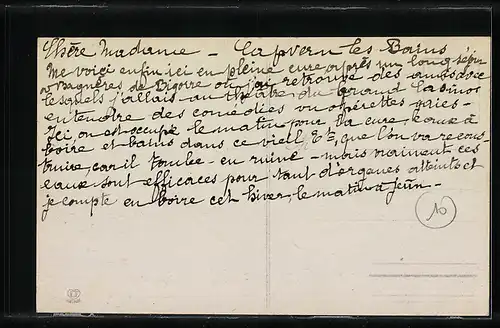 Chère Madame - Capvern les Bains
Me voici enfin ici en pleine cure après un long séjour
à Bagnères de Bigorre où j'ai retrouvé des amis avec
lesquels j'allais au théâtre du grand Casino
entendre des comédies ou opérettes gaies -
Ici, on est occupé le matin pour la cure, eaux à
boire et bains dans ce vieil Ets, que l'on va recons
truire, car il tombe en ruine - mais vraiment ces
eaux sont efficaces pour tant d'organes atteints et
je compte en boire cet hiver, le matin à jeûn -
10